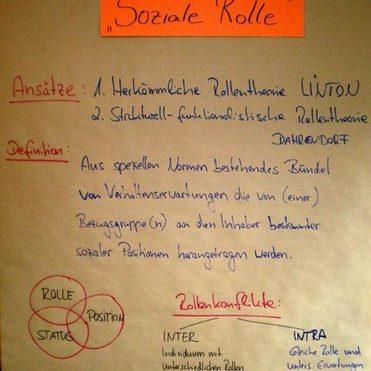 „Soziale Rolle"
Ansätze: 1. Herkömmliche Rollentheorie LINTON
2. Strukturell-funktionalistische Rollentheorie
DAHRENDORF
Definition:
Aus speziellen Normen bestehendes Bündel
von Verhaltenserwartungen die von (einer)
Bezugsgruppe(n) an den Inhaber bestimmter
sozialer Positionen herangetragen werden.
ROLLE
STATUS
POSITION
Rollenkonflikte:
INTER
Individuum mit
unterschiedlichen Rollen
INTRA
Gleiche Rolle und
unters. Erwartungen